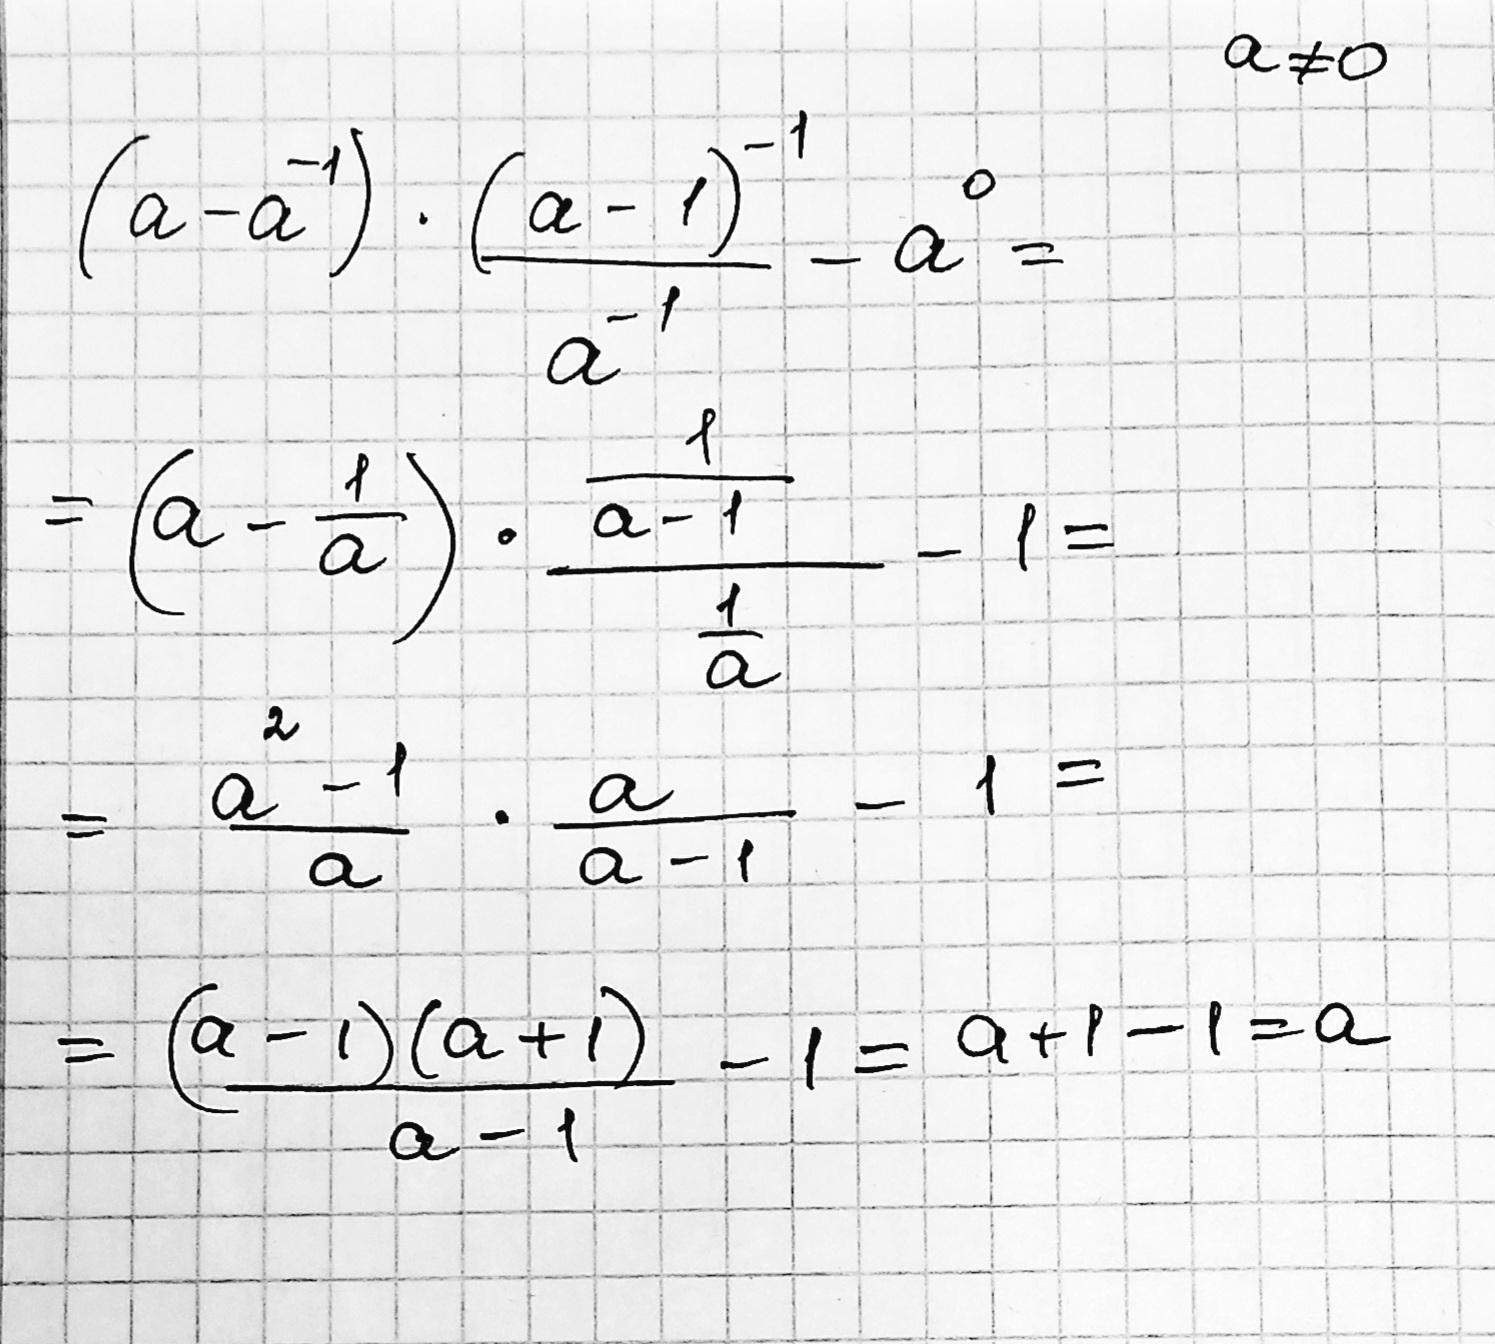 a ≠ 0
(a - a⁻¹) · (a - 1)⁻¹ / a⁻¹ - a⁰ =
= (a - 1/a) · (1/(a - 1)) / (1/a) - 1 =
= (a² - 1)/a · a/(a - 1) - 1 =
= (a - 1)(a + 1)/(a - 1) - 1 = a + 1 - 1 = a